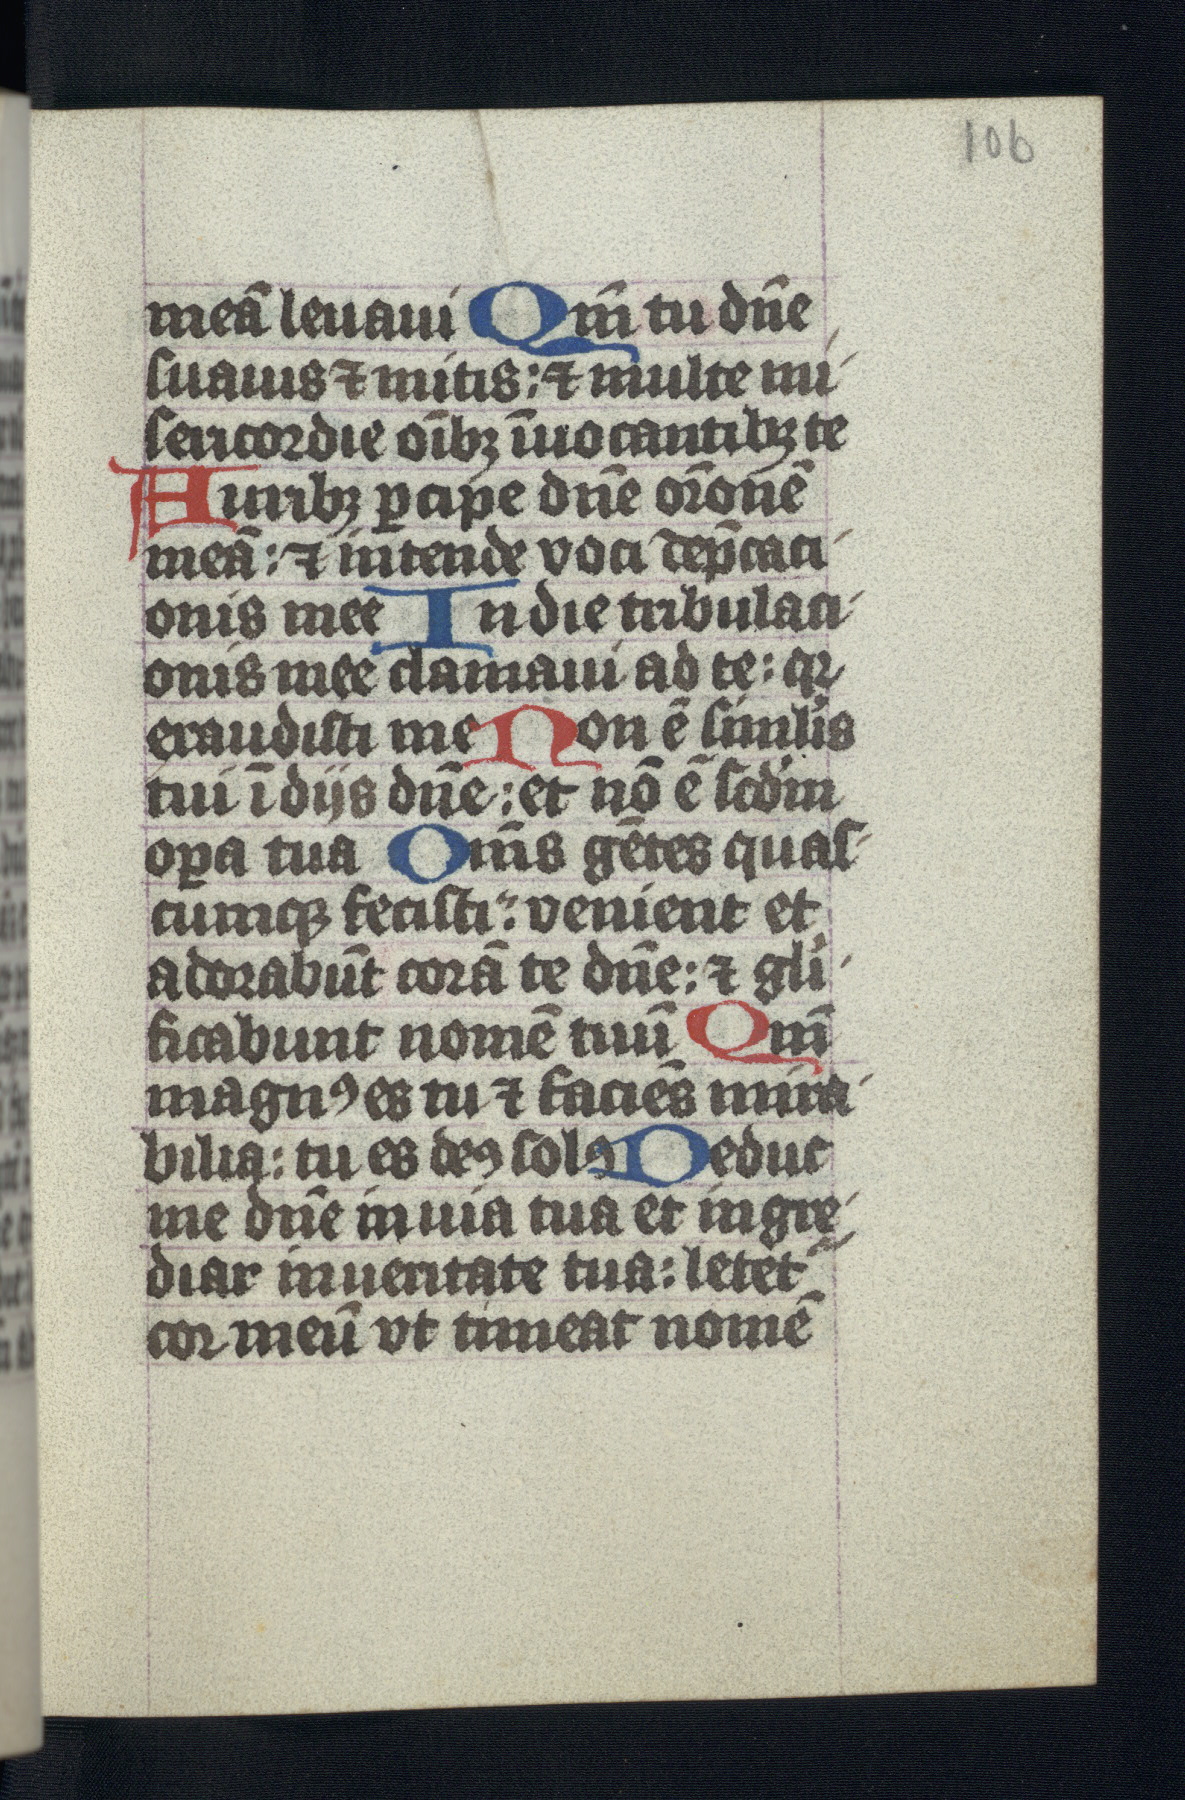 106
meā leuaui Qm̄ tu dn̄e
suauis ⁊ mitis: ⁊ multe mi
sericordie oībꝫ īuocantibꝫ te
Auribꝫ ꝑcipe dn̄e oŕonē
meā: ⁊ intende voci dep̄caci
onis mee In die tribulaci
onis mee clamaui ad te: qꝛ
exaudisti me Non ē similis
tui ī dijs dn̄e: et nō ē scd̓m
oꝑa tua Om̄s gētes quas
cumqꝫ fecisti: venient et
adorabūt corā te dn̄e: ⁊ gl̓i
ficabunt nomē tuū Qm̄
magnꝰ es tu ⁊ faciēs mira
bilia: tu es deꝰ solꝰ Deduc
me dn̄e in uia tua et ingre
diar in ueritate tua: letet᷑
cor meū vt timeat nomē